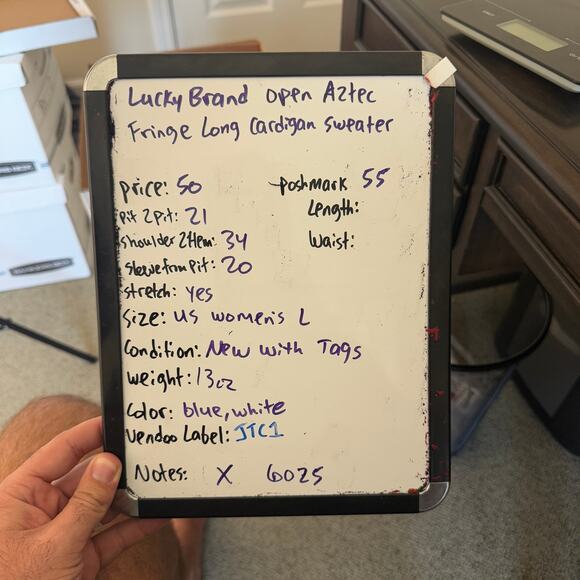 Lucky Brand open Aztec
Fringe Long Cardigan Sweater
price: 50
poshmark 55
pit 2 pit: 21
Length:
shoulder 2 Hem: 34
waist:
sleeve from pit: 20
stretch: yes
Size: US women's L
Condition: New with Tags
weight: 13oz
Color: blue, white
Vendoo Label: JTC1
Notes: X 6025